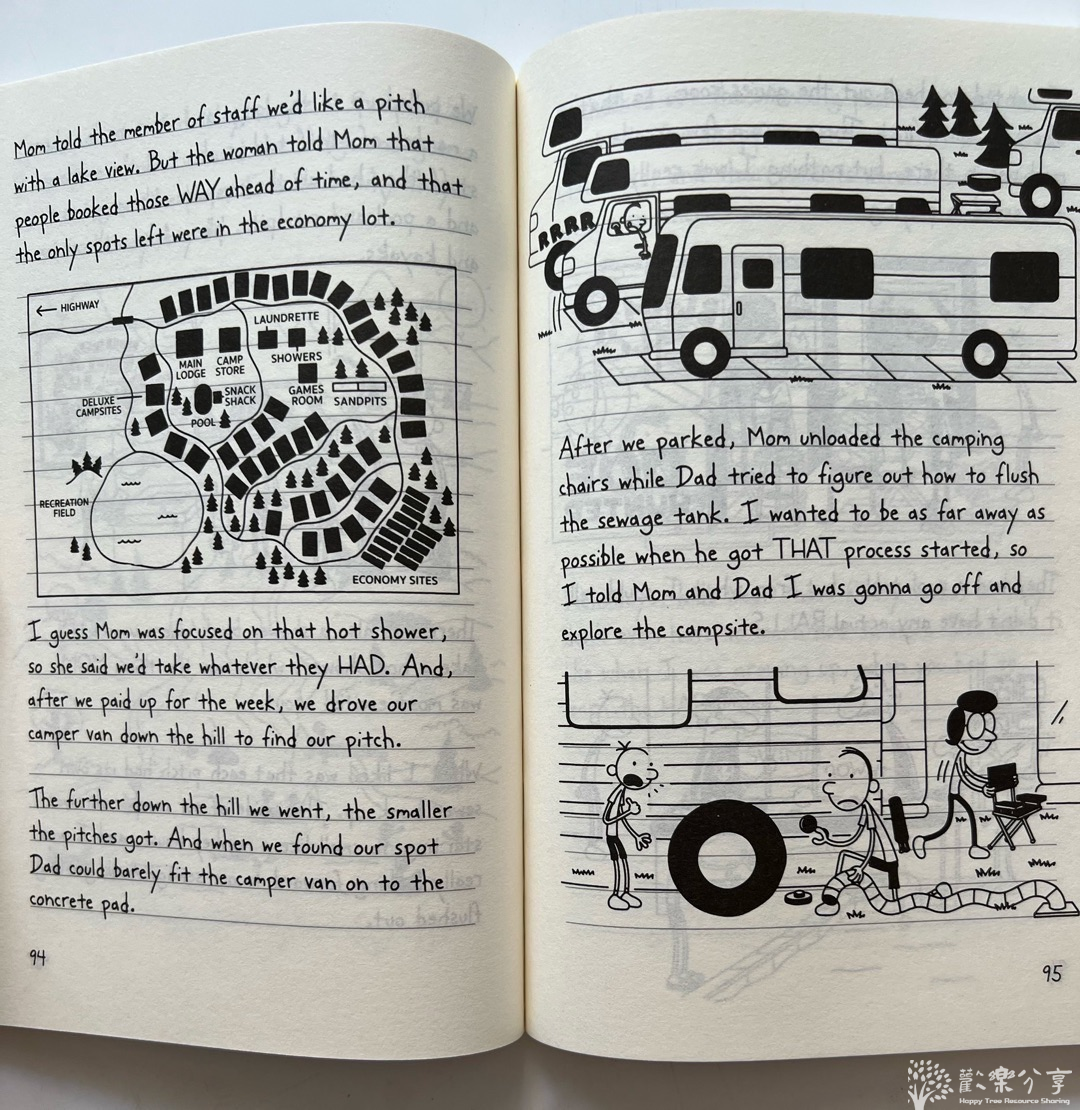 Mom told the member of staff we'd like a pitch
with a lake view. But the woman told Mom that
people booked those WAY ahead of time, and that
the only spots left were in the economy lot.
← HIGHWAY
LAUNDRETTE
MAIN
LODGE
CAMP
STORE
SHOWERS
DELUXE
CAMPSITES
SNACK
SHACK
GAMES
ROOM
SANDPITS
POOL
RECREATION
FIELD
ECONOMY SITES
I guess Mom was focused on that hot shower,
so she said we'd take whatever they HAD. And,
after we paid up for the week, we drove our
camper van down the hill to find our pitch.
The further down the hill we went, the smaller
the pitches got. And when we found our spot
Dad could barely fit the camper van on to the
concrete pad.
94
RRRR
After we parked, Mom unloaded the camping
chairs while Dad tried to figure out how to flush
the sewage tank. I wanted to be as far away as
possible when he got THAT process started, so
I told Mom and Dad I was gonna go off and
explore the campsite.
95
歡樂分享
Happy Tree Resource Sharing